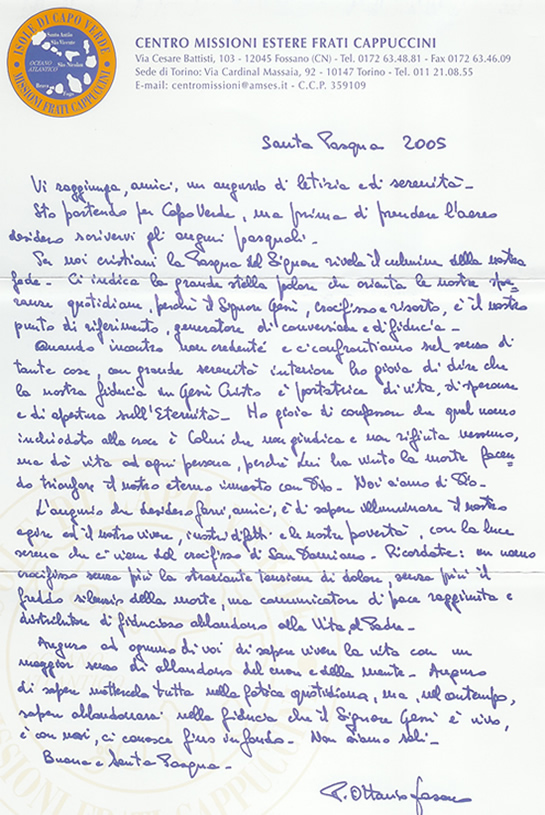 ISOLE DI CAPO VERDE
Santo Antão
São Vicente
São Nicolau
OCEANO
ATLANTICO
Brava
Fogo
MISSIONI FRATI CAPPUCCINI
CENTRO MISSIONI ESTERE FRATI CAPPUCCINI
Via Cesare Battisti, 103 - 12045 Fossano (CN) - Tel. 0172 63.48.81 - Fax 0172 63.46.09
Sede di Torino: Via Cardinal Massaia, 92 - 10147 Torino - Tel. 011 21.08.55
E-mail: centromissioni@amses.it - C.C.P. 359109
Santa Pasqua 2005
Vi raggiunga, amici, un augurio di letizia e di serenità -
Sto partendo per Capo Verde, ma prima di prendere l'aereo
desidero scrivervi gli auguri pasquali -
Per noi cristiani la Pasqua del Signore rivela il culmine della nostra
fede - Ci indica la grande stella polare che orienta le nostre spe-
ranze quotidiane, perchè il Signore Gesù, crocifisso e risorto, è il nostro
punto di riferimento, generatore di conversione e di fiducia -
Quando incontro non credenti e ci confrontiamo sul senso di
tante cose, con grande serenità interiore ho gioia di dire che
la nostra fiducia in Gesù Cristo è portatrice di vita, di speranza
e di apertura sull'Eternità - Ho gioia di confessare che quel uomo
inchiodato alla croce è Colui che non giudica e non rifiuta nessuno,
ma dà vita ad ogni persona, perchè Lui ha vinto la morte facen-
do trionfare il nostro eterno innesto con Dio - Noi siamo di Dio -
L'augurio che desidero farvi, amici, è di sapere illuminare il nostro
agire ed il nostro vivere, i nostri difetti e le nostre povertà, con la luce
serena che ci viene dal crocifisso di San Damiano - Ricordate: un uomo
crocifisso senza più la straziante tensione di dolore, senza più il
freddo silenzio della morte, ma comunicatore di pace raggiunta e
distributore di fiducioso abbandono alla Vita del Padre -
Auguro ad ognuno di voi di sapere vivere la vita con un
maggior senso di abbandono del cuore e della mente - Auguro
di sapere mettercela tutta nella fatica quotidiana, ma, nel contempo,
sapersi abbandonarsi nella fiducia che il Signore Gesù è vivo,
è con noi, ci conosce fino in fondo - Non siamo soli -
Buona e Santa Pasqua -
P. Ottavio Fasano